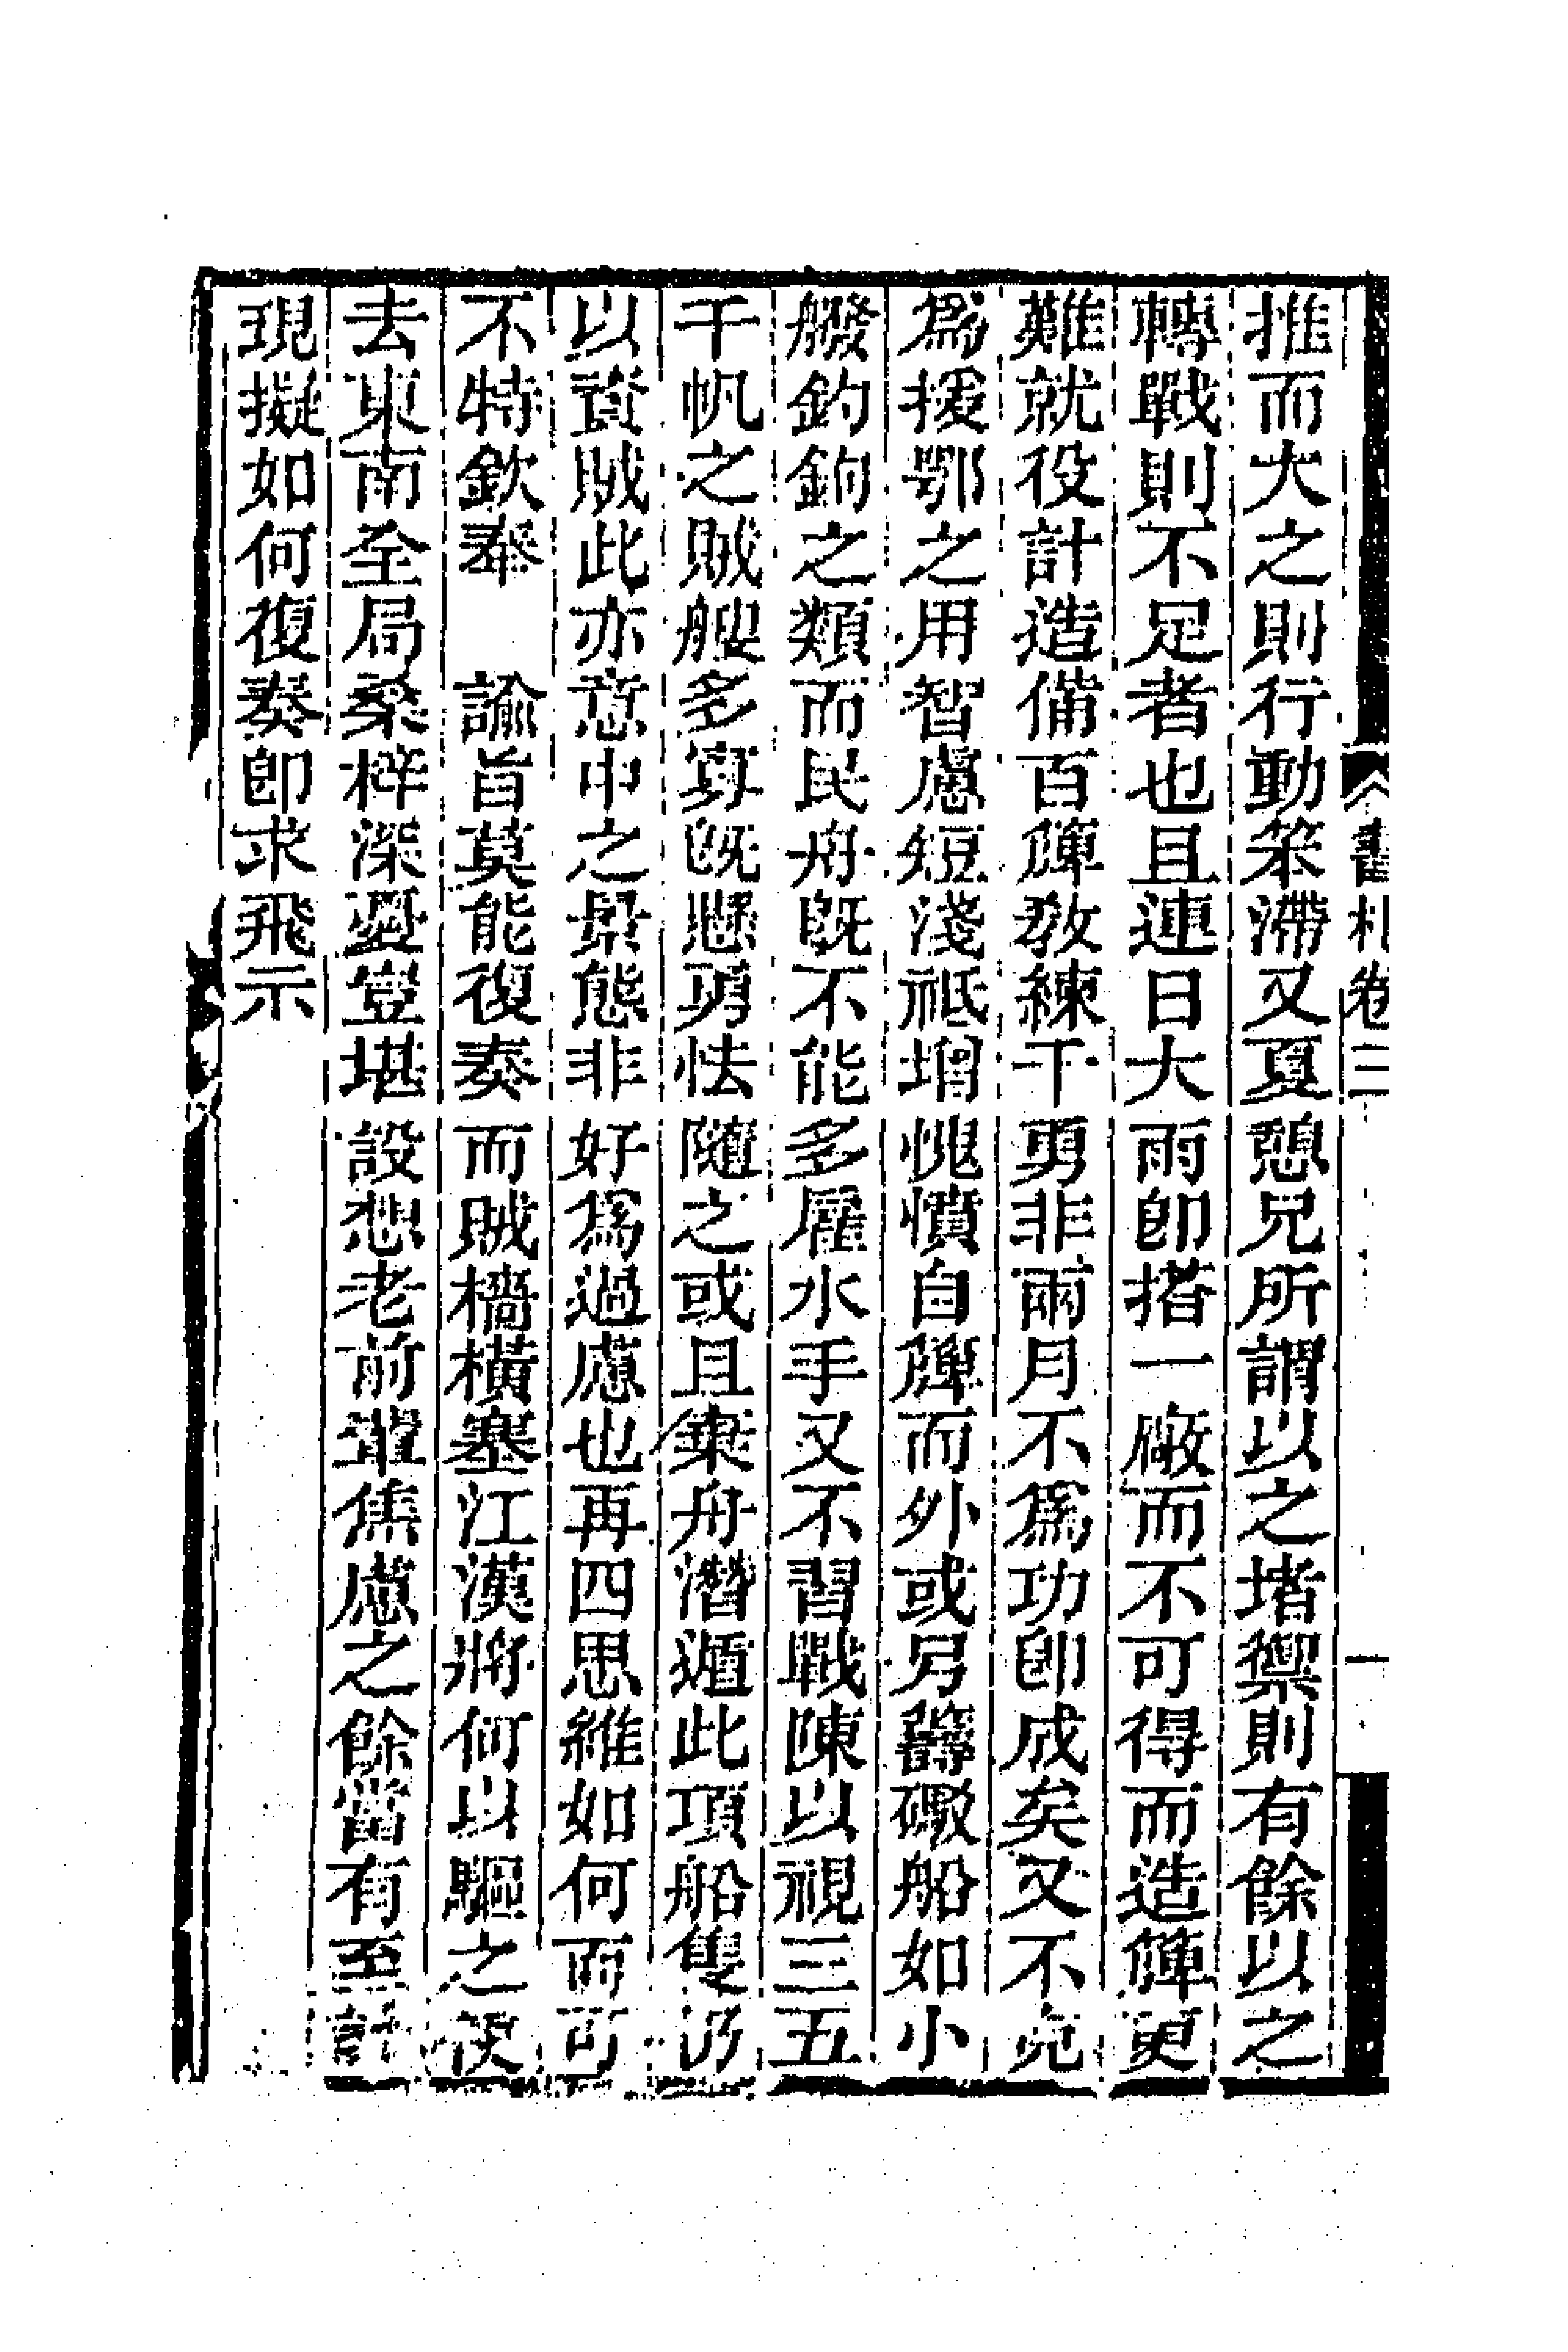 書札卷二 一
推而大之則行動笨滯又夏憩兄所謂以之堵禦則有餘以之
轉戰則不足者也且連日大雨卽搭一廠而不可得而造簰更
難就役計造備百簰教練千勇非兩月不爲功卽成矣又不克
爲援鄂之用智慮短淺祗增愧憤自簰而外或另籌礮船如小
釣鉤之類而民舟旣不能多雇水手又不習戰陳以視三五
千帆之賊艘多寡旣懸勇怯隨之或且棄舟潛遁此項船隻仍
以資賊此亦意中之景態非好爲過慮也再四思維如何而可
不特欽奉 諭旨莫能復奏而賊檣橫塞江漢將何以驅之使
去東南全局桑梓深憂豈堪設想老前輩焦慮之餘當有至計
現擬如何復奏卽求飛示